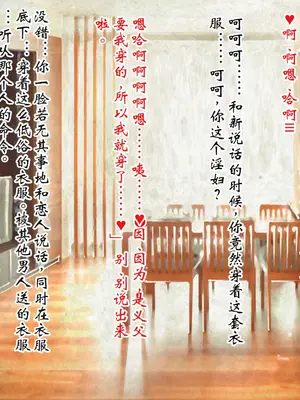 ♥啊、啊嗯、哈啊三
呵呵呵……和新说话的时候，你竟然穿着这套衣
服……呵呵，你这个淫妇？
嗯哈啊啊啊啊嗯……咦……♥因、因为是义父
要我穿的，所以我就穿了……♥」别、别说出来
啦。
没错……你一脸若无其事地和恋人说话，同时在衣服
底下……穿着这么低俗的衣服。被其他男人送的衣服
……听从那个人的命令。